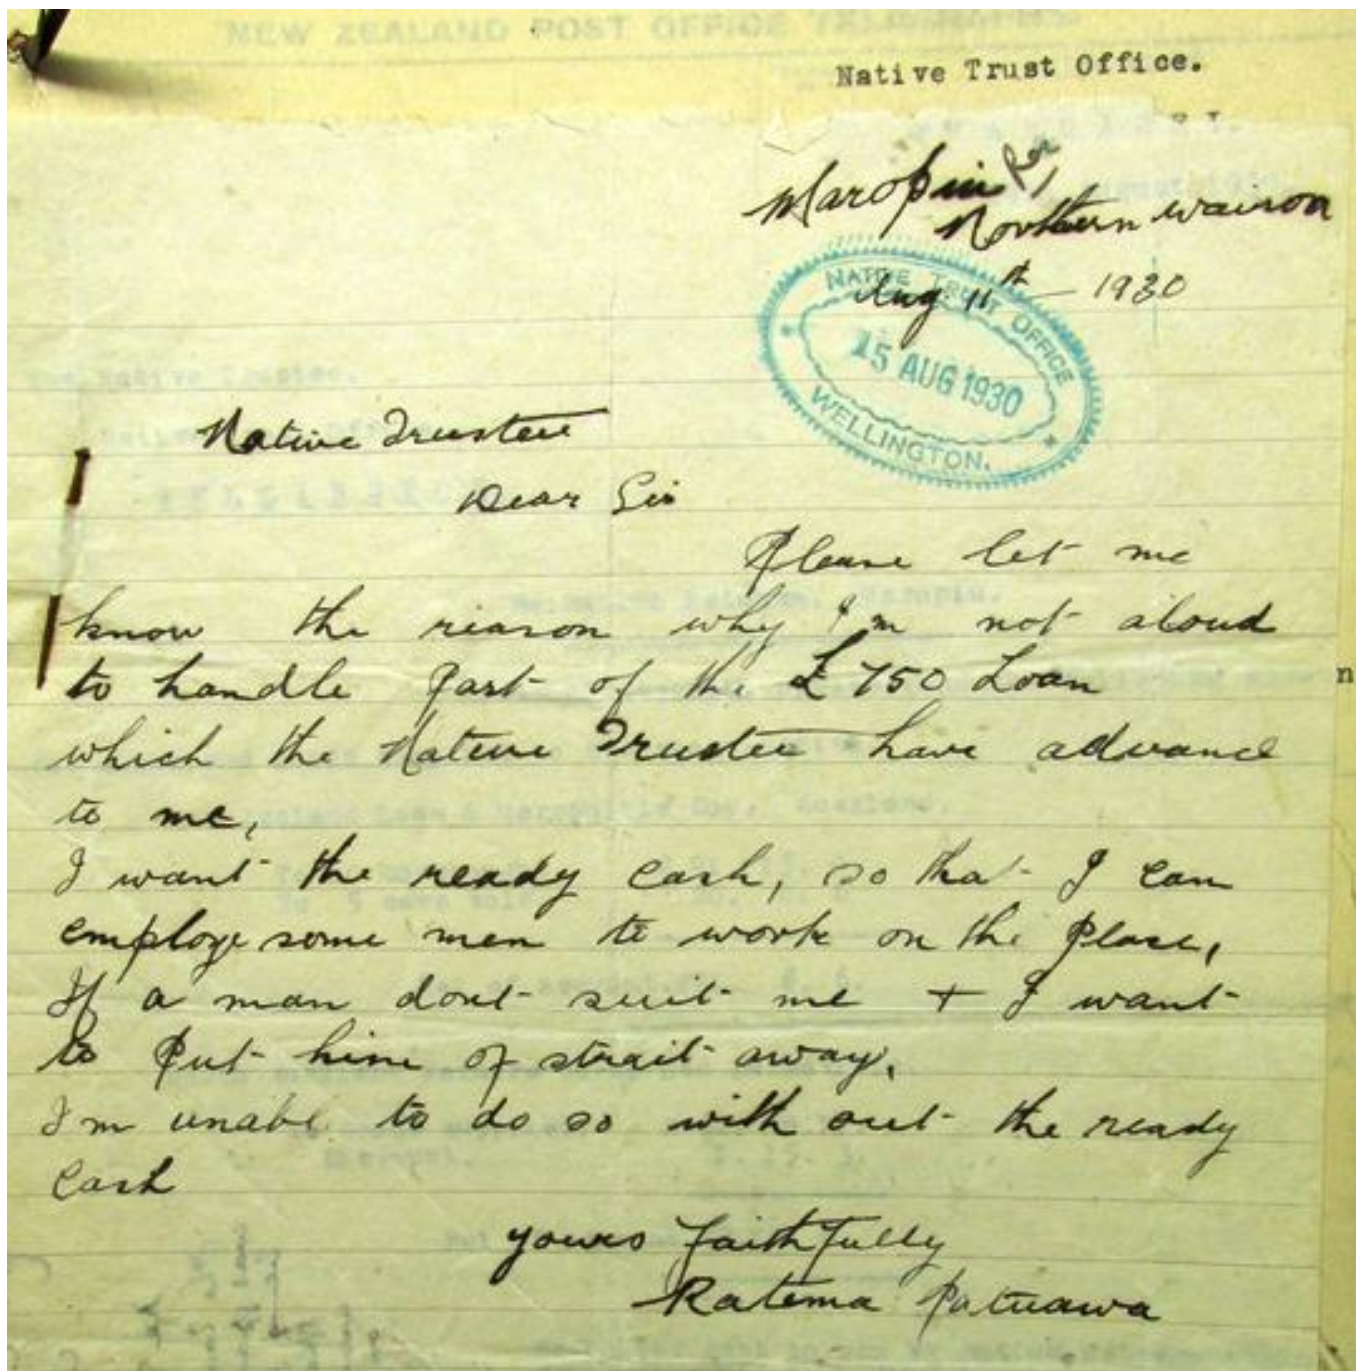 NEW ZEALAND POST OFFICE
Native Trust Office.
Maropiu
Northern Wairoa
Aug. 11th 1930
NATIVE TRUST OFFICE
15 AUG 1930
WELLINGTON.
Native Trustee
Dear Sir
Please let me
know the reason why I'm not aloud
to handle Part of the £750 Loan
which the Native Trustee have advance
to me,
I want the ready cash, so that I can
employe some men to work on the Place,
If a man dont suit me + I want
to Put hime of strait away,
I'm unable to do so with out the ready
Cash
yours faithfully
Ratema Patuawa